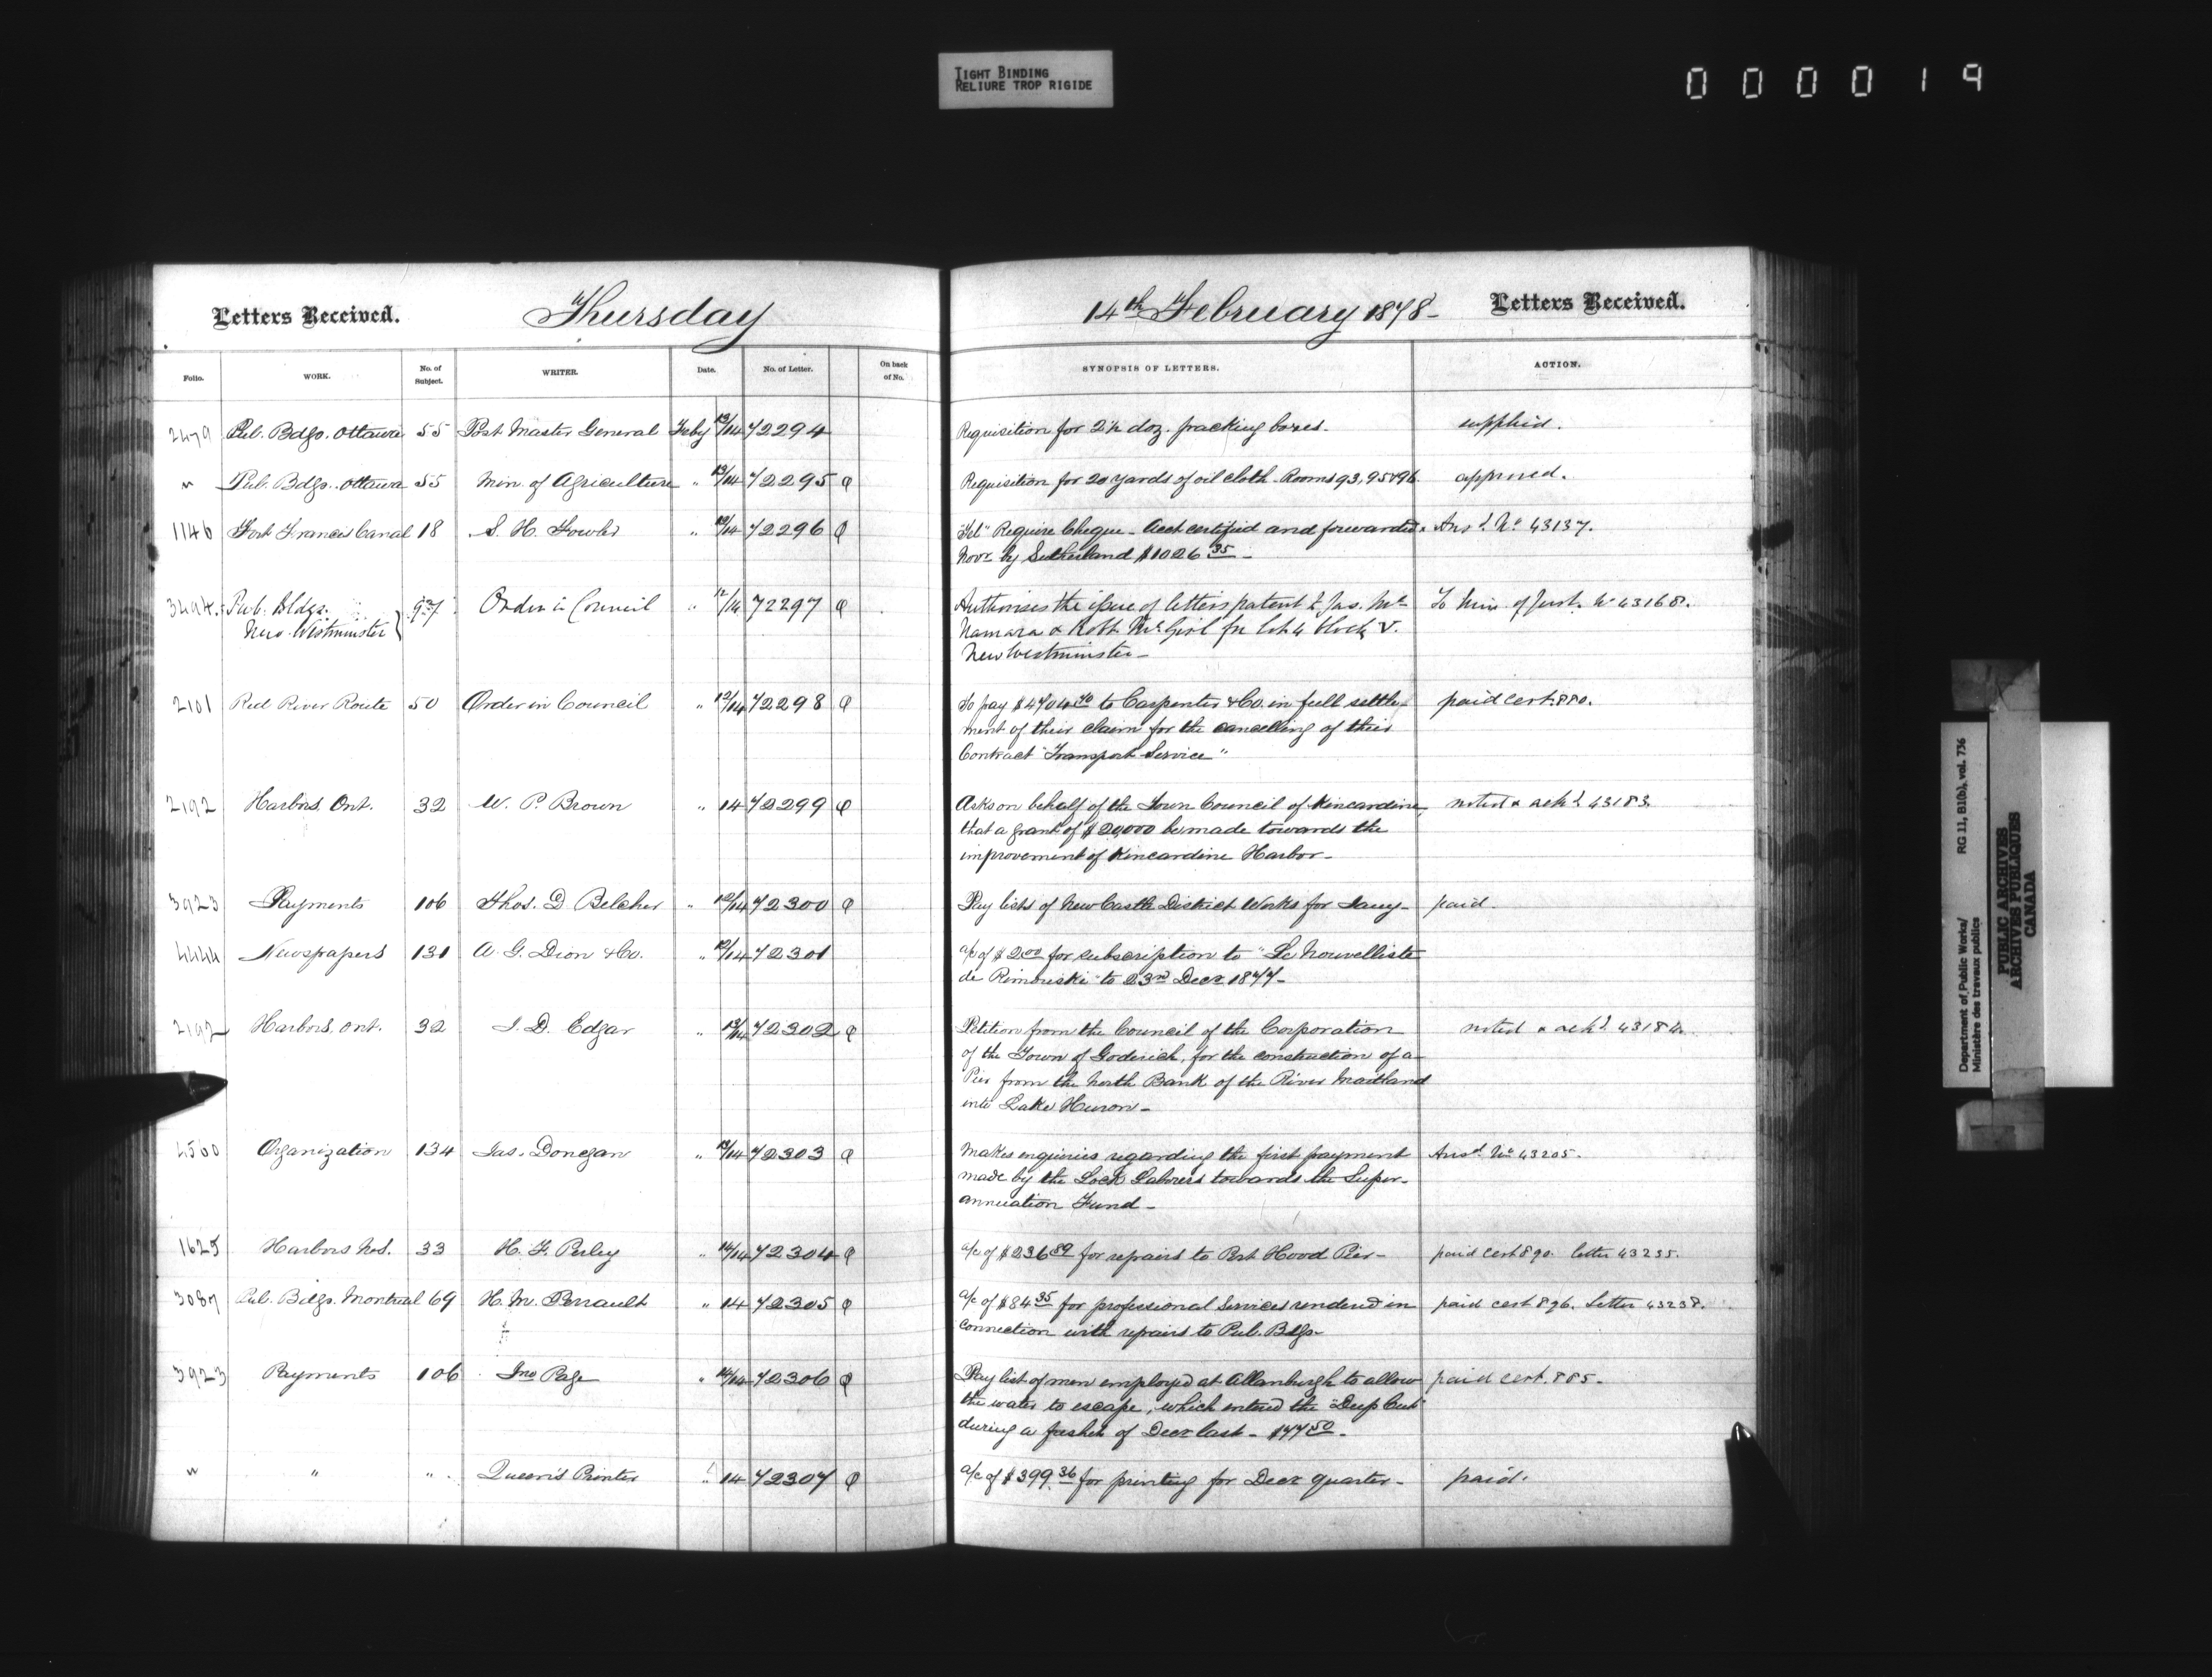 TIGHT BINDING
RELIURE TROP RIGIDE
000019
Letters Received. Thursday 14th February 1878- Letters Received.
Folio. WORK. No. of Subject. WRITER. Date. No. of Letter. On back of No. SYNOPSIS OF LETTERS. ACTION.
2479 Pub. Bdgs. Ottawa 55 Post Master General Feby 13/14 72294 Requisition for 2½ doz. packing boxes. supplied.
" Pub. Bdgs. Ottawa 55 Min. of Agriculture " 13/14 72295 Requisition for 20 yards of oil cloth. Rooms 93, 95 & 96. approved.
1146 Fort Francis Canal 18 S. H. Fowler " 12/14 72296 "Tel" Require Cheque - Acct certified and forwarded Ansd. No 43137.
Novr by Sutherland $1026 35 -
3494. Pub. Bldgs. 97 Order in Council " 12/14 72297 Authorises the issue of letters patent to Jas. Mc To Min. of Just. No 43168.
New Westminster Namara & Robt. McGirl for lot 4 block V.
New Westminster -
2101 Red River Route 50 Order in Council " 12/14 72298 To pay $4704 40 to Carpenter & Co. in full settle- paid cert. 880.
ment of their claim for the cancelling of their
Contract "Transport Service"
2192 Harbors, Ont. 32 W. P. Brown " 14 72299 Asks on behalf of the Town Council of Kincardine, noted & ackd 43183.
that a grant of $20,000 be made towards the
improvement of Kincardine Harbor -
3923 Payments 106 Thos. D. Belcher " 12/14 72300 Pay lists of New Castle District Works for Jany - paid.
4444 Newspapers 131 A. G. Dion & Co. " 12/14 72301 a/c of $2.00 for subscription to "Le Nouvelliste
de Rimouski" to 23rd Decr 1877 -
2192 Harbors, Ont. 32 J. D. Edgar " 13/14 72302 Petition from the Council of the Corporation noted & ackd 43184.
of the Town of Goderich, for the construction of a
Pier from the North Bank of the River Maitland
into Lake Huron -
4560 Organization 134 Jas. Donegan " 13/14 72303 Makes enquiries regarding the first payment Ansd No 43205.
made by the Lock Laborers towards the Super-
annuation Fund -
1625 Harbors N.S. 33 H. F. Perley " 14/14 72304 a/c of $236 89 for repairs to Port Hood Pier - paid cert 890. letter 43235.
3087 Pub. Bdgs. Montreal 69 H. M. Perrault " 14 72305 a/c of $84 35 for professional Services rendered in paid cert 896. Letter 43238.
connection with repairs to Pub. Bdgs -
3923 Payments 106 Jno Page " 14/14 72306 Pay list of men employed at Allanburgh to allow paid cert. 885.
the water to escape, which entered the "Deep Cut"
during a freshet of Decr last - $77 50 -
" " " Queen's Printer " 14 72307 a/c of $399.36 for printing for Decr quarter - paid.
Department of Public Works/ RG 11, B1(b), vol. 736
Ministère des travaux publics
PUBLIC ARCHIVES
ARCHIVES PUBLIQUES
CANADA